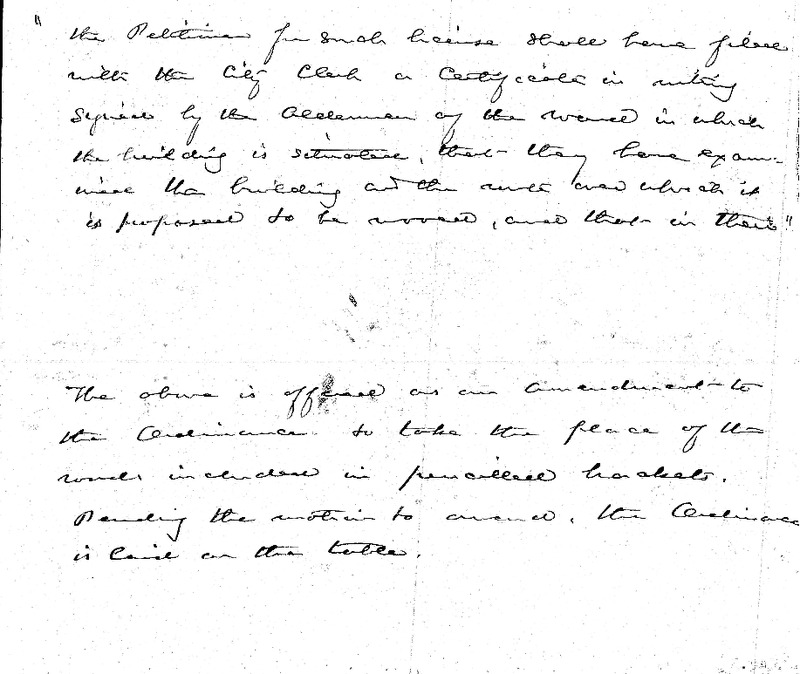 "the Petitioner for such license shall have filed
with the City Clerk a Certificate in writing
signed by the Aldermen of the ward in which
the building is situated, that they have exam-
ined the building and the route over which it
is proposed to be moved, and that in their"
The above is offered as an amendment to
the Ordinance to take the place of the
words included in pencilled brackets.
Pending the motion to amend, the Ordinance
is laid on the table.